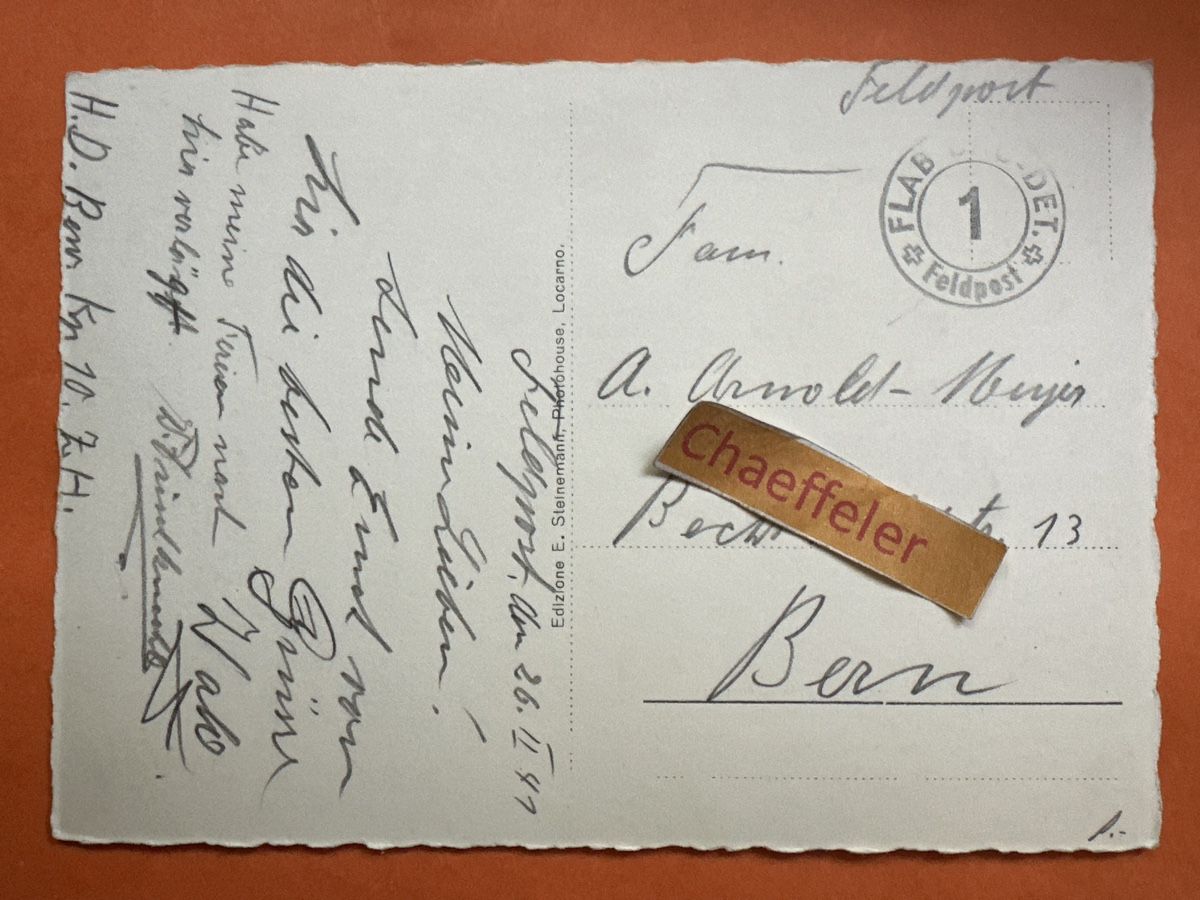 Feldpost
FLAB DET.
1
Feldpost
Fam.
A. Arnold-Meyer
Chaeffeler
13
Bern
1.-
Edizione E. Steinemann, Photohouse, Locarno.
Feldpost, den 26. II 41
Meine Lieben!
Sende Euch von
hier die besten Grüsse
Habe meine Ferien nach
hier verlegt.
H.D. Bew. Kp 10. Z.H.